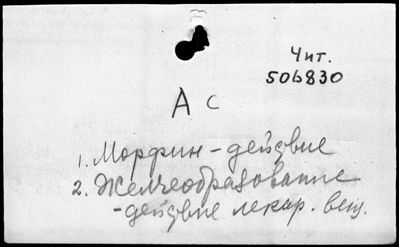 Чит.
506830
А с
1. Морфин - действие
2. Желчеобразование
- действие лекар. вещ.